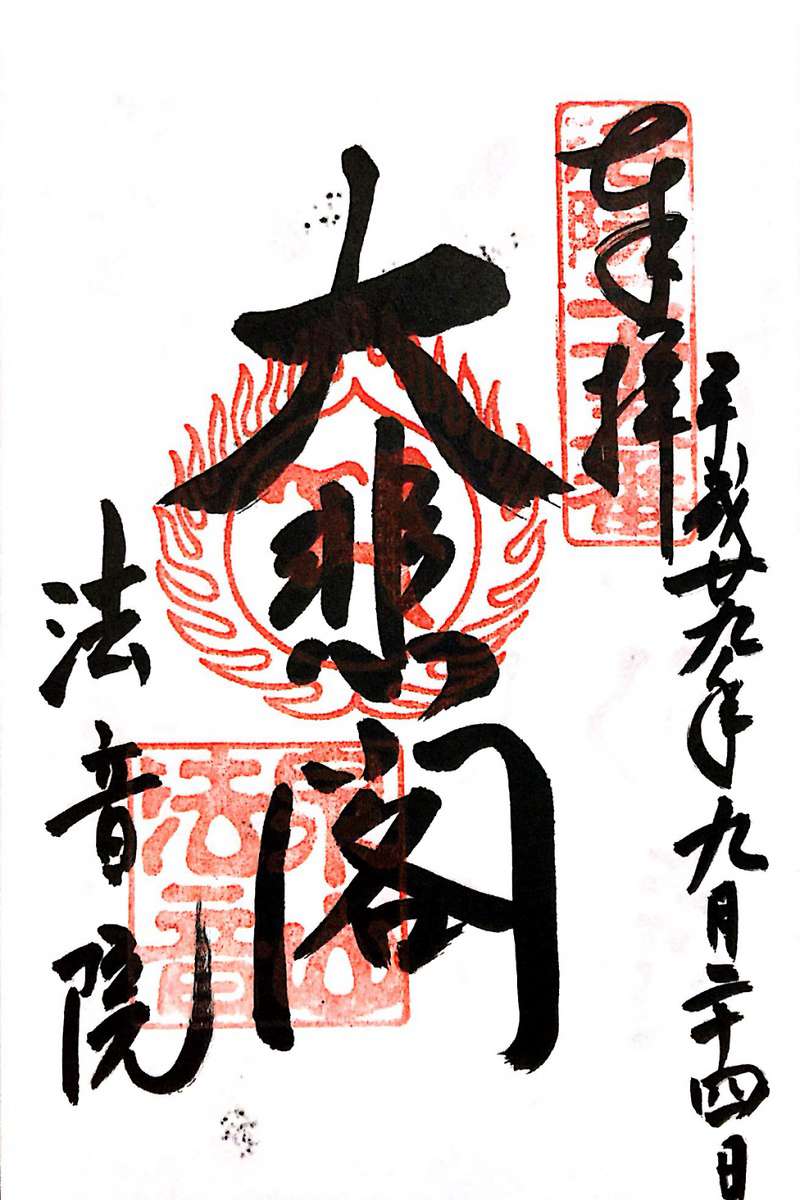 奉拝
平成廿九年九月二十四日
大悲閣
法音院